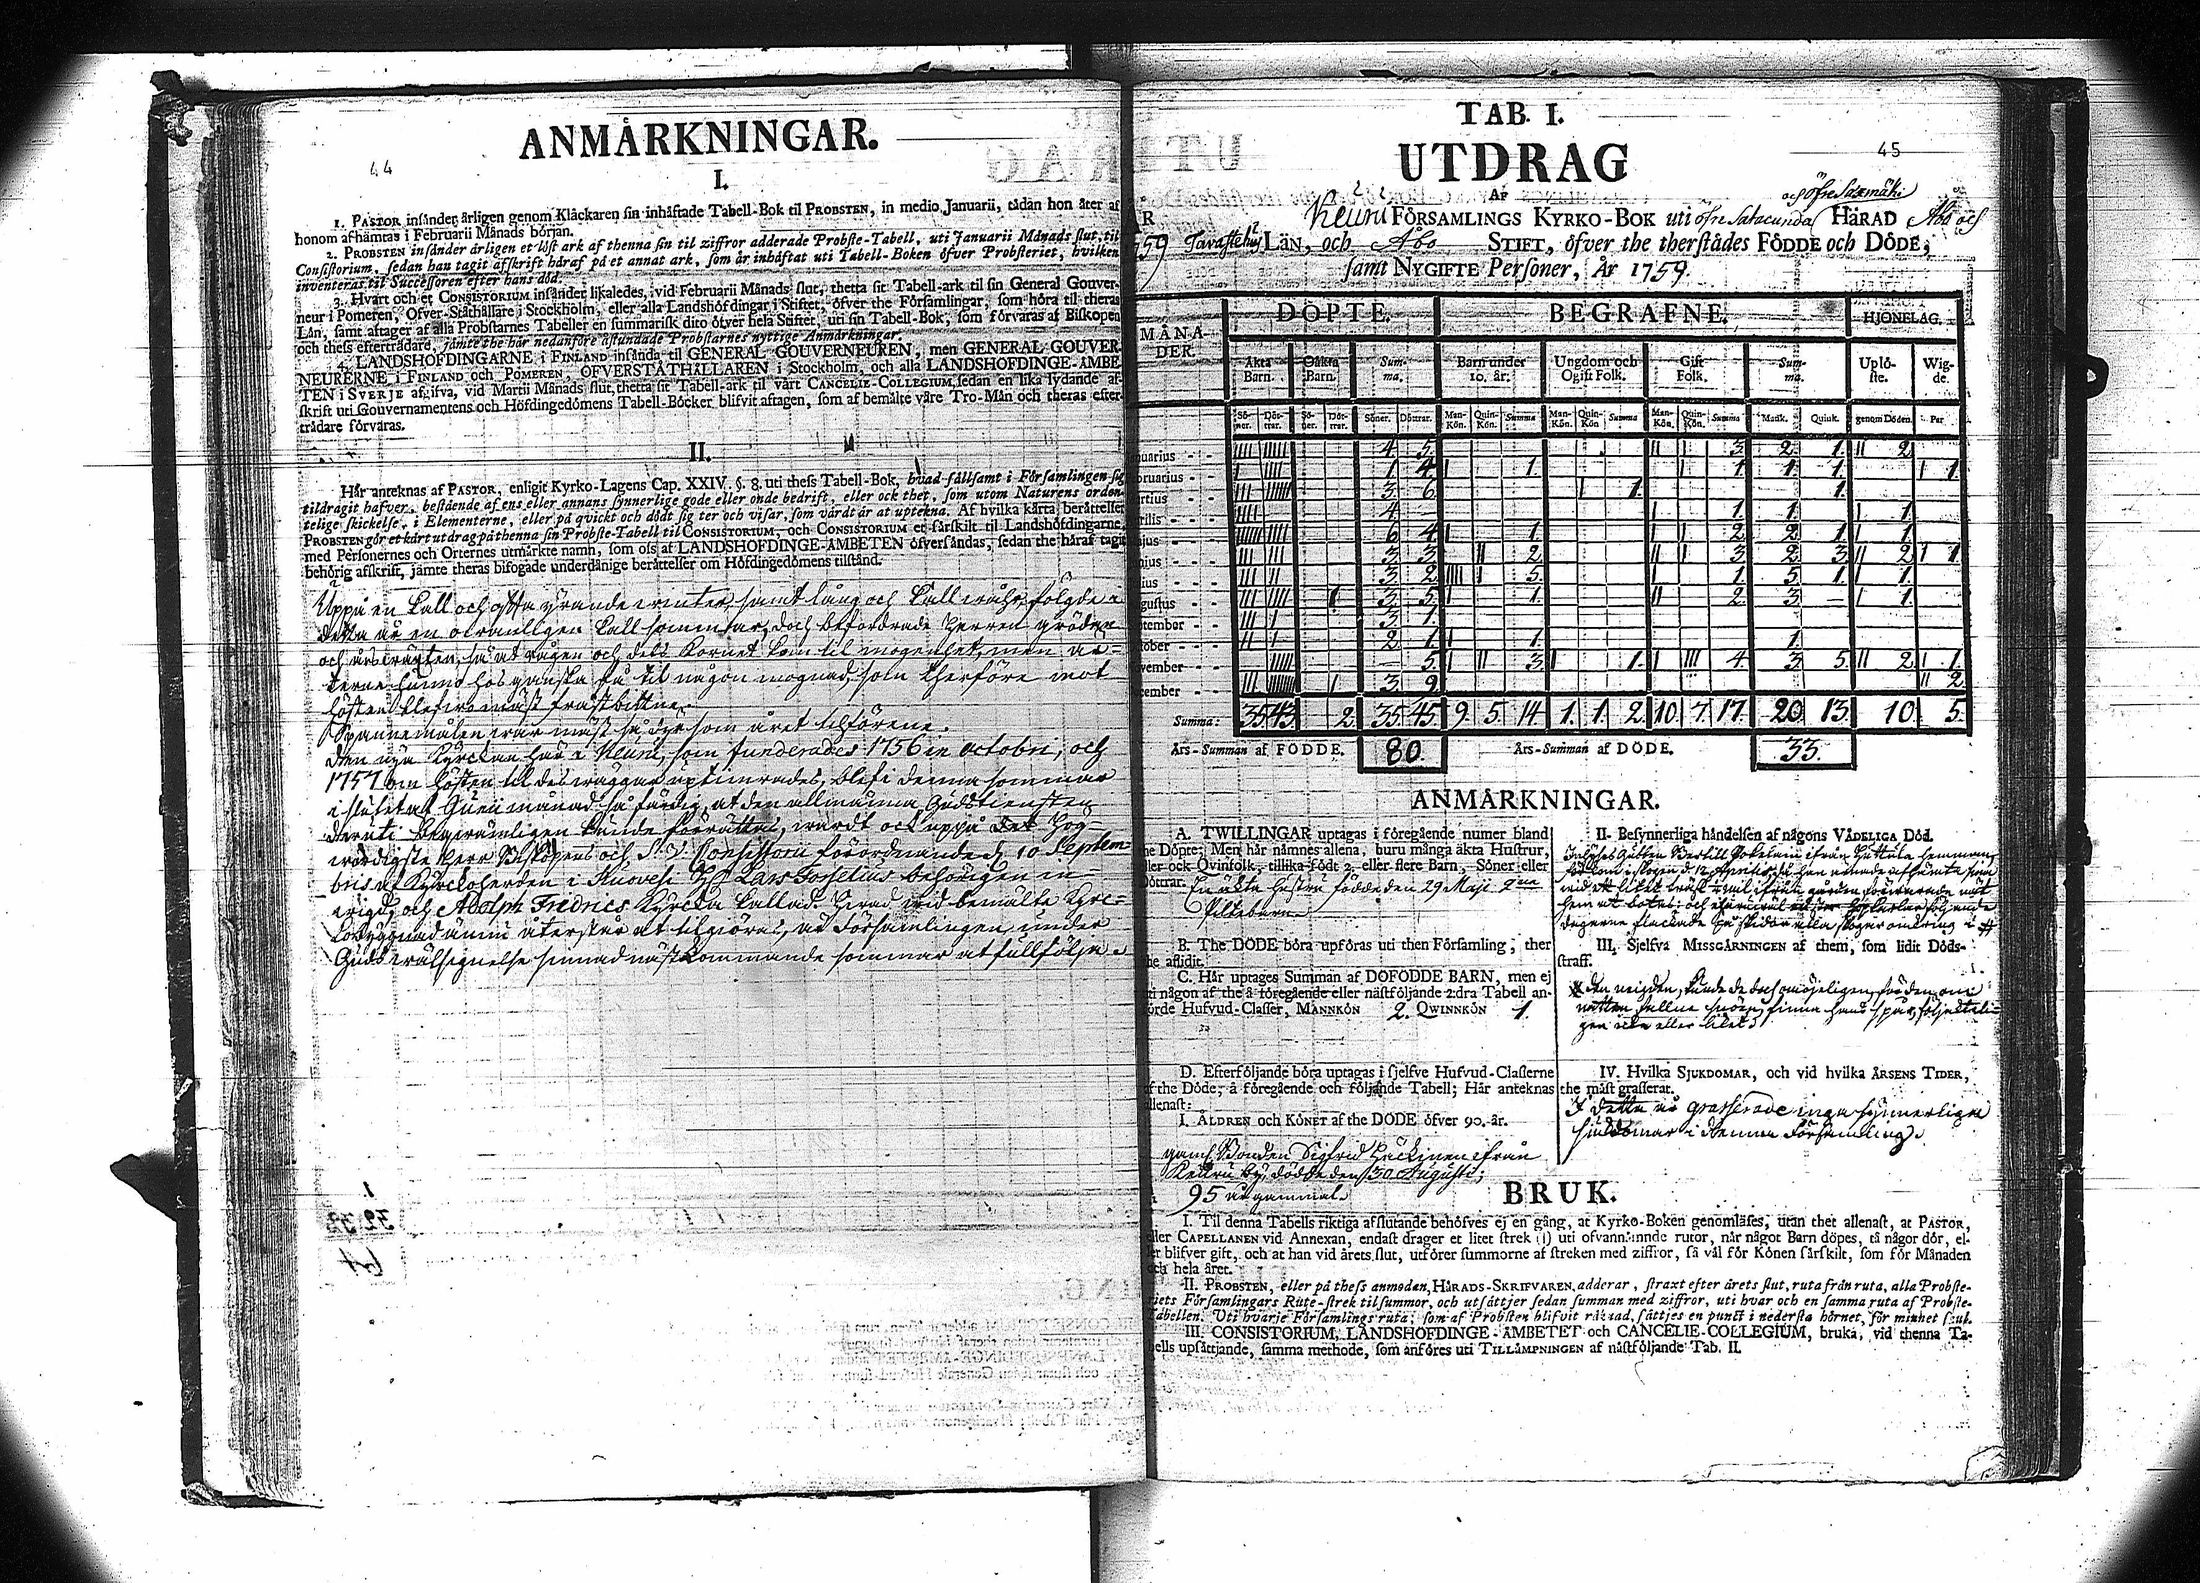 44
ANMÅRKNINGAR.
I.
1. PASTOR insånder årligen genom Klåckaren sin inhåftade Tabell-Bok til PROBSTEN, in medio Januarii, tådan hon åter af
honom afhåmtas i Februarii Månads början.
2. PROBSTEN insånder årligen et löst ark af thenna sin til ziffror adderade Probste-Tabell, uti Januarii Månads slut, til
Consistorium, sedan han tagit afskrift håraf på et annat ark, som år inhåftat uti Tabell-Boken öfver Probsteriet, hvilken
inventeras til Successoren efter hans död.
3. Hvart och et CONSISTORIUM insånder likaledes, vid Februarii Månads slut, thetta sit Tabell-ark til sin General Gouver-
neur i Pomeren, Öfver-Ståthållare i Stockholm, eller alla Landshöfdingar i Stiftet, öfver the Församlingar, som höra til theras
Lån, samt aftager af alla Probstarnes Tabeller en summarisk dito öfver hela Stiftet, uti sin Tabell-Bok, som förvaras af Biskopen
och thess efterträdare, jåmte the hår nedanföre åstundade Probstarnes nyttige Anmårkningar.
4. LANDSHÖFDINGARNE i FINLAND insånda til GENERAL GOUVERNEUREN, men GENERAL GOUVER
NEURERNE i FINLAND och POMEREN, ÖFVERSTÅTHÅLLAREN i Stockholm, och alla LANDSHÖFDINGE-ÅMBE
TEN i SVERJE afgifva, vid Martii Månads slut, thetta sit Tabell-ark til vårt CANCELIE-COLLEGIUM, sedan en lika lydande af-
skrift uti Gouvernamentens och Höfdingedömens Tabell-Böcker blifvit aftagen, som af bemålte våre Tro-Mån och theras efter-
trådare förvaras.
II.
Hår anteknas af PASTOR, enligit Kyrko-Lagens Cap. XXIV. §. 8. uti thess Tabell-Bok, hvad sållsamt i Församlingen sig
tildragit hafver, bestående af ens eller annans synnerlige gode eller onde bedrift, eller ock thet, som utom Naturens orden-
telige skickelse, i Elementerne, eller på qvickt och dödt sig ter och visar, som vårdt år at uptekna. Af hvilka kårta beråttelser
PROBSTEN gör et kårt utdrag på thenna sin Probste-Tabell til CONSISTORIUM, och CONSISTORIUM et sårskilt til Landshöfdingarne,
med Personernes och Orternes utmårkte namn, som oss af LANDSHÖFDINGE-ÅMBETEN öfversåndas, sedan the håraf tagit
behörig afskrift, jåmte theras bifogade underdånige beråttelser om Höfdingedömens tilstånd.
Uppå en kall och ofta yrande winter, samt lång och kall wåhr, följde i
detta år en owanligen kall sommar, doch befordrade Herren gröden
och årswäxten, så at rågen och dels kornet kom til mogenhet, men är-
terne hunno hos ganska få til någon mognad, som therföre mot
hösten blefwo mäst frostbitne.
Spannemålen war mäst så dyr som året tilförene.
Den nya Kyrckan här i Keuru, som funderades 1756 in octobri, och
1757 om hösten til des wäggar uptimrades, blef denna sommar
i slutet af Junii månad så färdig, at den allmänna Gudstiensten
deruti beqwämligen kunde förrättas, wardt ock uppå det Hög-
wördigste Herr Biskopens och S. V. Consistorii förordnande d. 10 Septem-
bris af Kyrckoherden i Ruovesi H. Lars Forselius behörigen in-
wigd, och Adolph Fredrics Kyrcka kallad. Hwad wid bemälte Kyrc-
kobyggnad ännu återstår at tilgiöras, är Församlingen under
Guds wälsignelse sinnad nästkommande sommar at fullfölja.
45
TAB. I.
UTDRAG
AF
och öfre Saxmäki
Keuru FÖRSAMLINGS KYRKO-BOK uti öfre Satacunda HÅRAD Åbo och
Tavastehus LÅN, och Åbo STIFT, öfver the therstådes FÖDDE och DÖDE,
samt NYGIFTE Personer, År 1759.
MÅNA-
DER.
DÖPTE. BEGRAFNE. HJONELAG.
Åkta Barn. Oåkta Barn. Sum-ma. Barn under 10. år. Ungdom och Ogift Folk. Gift Folk. Sum-ma. Uplö-ste. Wig-de.
Sö-ner. Döt-trar. Sö-ner. Döt-trar. Söner. Döttrar. Man-Kön. Quin-Kön. Summa Man-Kön. Quin-Kön Summa Man-Kön. Quin-Kön. Summa Mank. Quink. genom Döden. Par
nuarius 4. 5. 3. 2. 1. 2.
bruarius 1. 4. 1. 1. 1. 1. 1.
rtius 3. 6. 1. 1.
rilis 4. 1. 1. 1.
ajus 6. 4. 1. 2. 2. 1. 1.
nius 3. 3. 2. 3. 2. 3. 2. 1.
lius 3. 2. 5. 1. 5. 1. 1.
gustus 3. 5. 1. 2. 3. 1.
tember 3. 1.
tober 2. 1. 1. 1.
vember 5. 3. 1. 4. 3. 5. 2. 1.
cember 3. 9. 2.
Summa: 35 43 2 35 45 9 5 14 1. 1. 2. 10 7. 17. 20 13. 10 5.
Års-Summan af FÖDDE. 80. Års-Summan af DÖDE. 33.
ANMÅRKNINGAR.
A. TWILLINGAR uptagas i föregående numer bland
he Döpte; Men hår nåmnes allena, huru många åkta Hustrur,
ller ock Qvinfolk, tillika födt 2. eller flere Barn, Söner eller
Döttrar. En äkta hustru födde den 29 Maji 2:ne
Piltebarn.
B. The DÖDE böra upföras uti then Församling, ther
the aflidit.
C. Hår uptages Summan af DÖDFÖDDE BARN, men ej
uti någon af the å föregående eller nåstföljande 2:dra Tabell an-
förde Hufvud-Classer, MANNKÖN 2. QWINNKÖN 1.
D. Efterföljande böra uptagas i sjelfve Hufvud-Classerne
af the Döde, å föregående och följande Tabell; Hår anteknas
allenast:
I. ÅLDREN och KÖNET af the DÖDE öfver 90. år.
gaml. Bonden Sigfrid Häckinen ifrån
Keuru by, dödde den 30 Augusti,
95 år gammal.
II. Besynnerliga håndelser af någons VÅDELIGA Död.
III. Sjelfva MISSGÅRNINGEN af them, som lidit Döds-
straff.
IV. Hvilka SJUKDOMAR, och vid hvilka ÅRSENS TIDER,
the måst grasserat.
I detta år grasserade inga synnerliga
siukdomar i denna Församling.
BRUK.
I. Til denna Tabells riktiga afslutande behöfves ej en gång, at Kyrko-Boken genomlåses, utan thet allenast, at PASTOR,
eller CAPELLANEN vid Annexan, endast drager et litet strek (|) uti ofvannåmnde rutor, når något Barn döpes, tå någor dör, el-
ler blifver gift, och at han vid årets slut, utförer summorne af streken med ziffror, så vål för Könen sårskilt, som för Månaden
och hela året.
II. PROBSTEN, eller på thess anmodan, HÅRADS-SKRIFVAREN, adderar, straxt efter årets slut, ruta från ruta, alla Probste-
riets Församlingars Rute-strek til summor, och utsåttjer sedan summan med ziffror, uti hvar och en samma ruta af Probste-
tabellen. Uti hvarje Församlings ruta, som af Probsten blifvit råknad, såttjes en punct i nedersta hörnet, för minnet skul.
III. CONSISTORIUM, LANDSHÖFDINGE-ÅMBETET och CANCELIE-COLLEGIUM, bruka, vid thenna Ta-
bells upsåttjande, samma methode, som anföres uti TILLÅMPNINGEN af nåstföljande Tab. II.